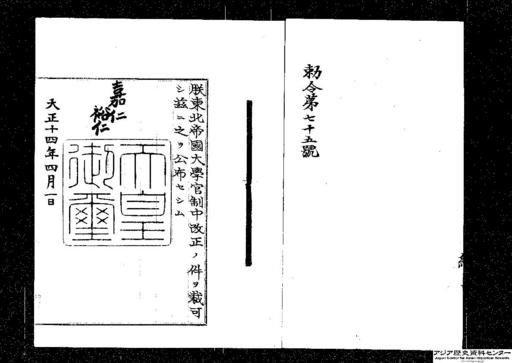 勅令第七十五號
朕東北帝國大學官制中改正ノ件ヲ裁可
シ茲ニ之ヲ公布セシム
嘉仁
裕仁
天皇御璽
大正十四年四月一日
アジア歴史資料センター
Japan Center for Asian Historical Records